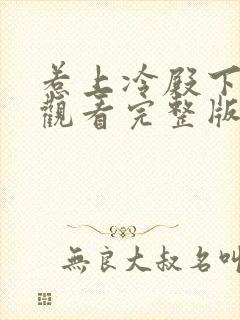 惹上冷殿下
觀看完整版
無良大叔名叫